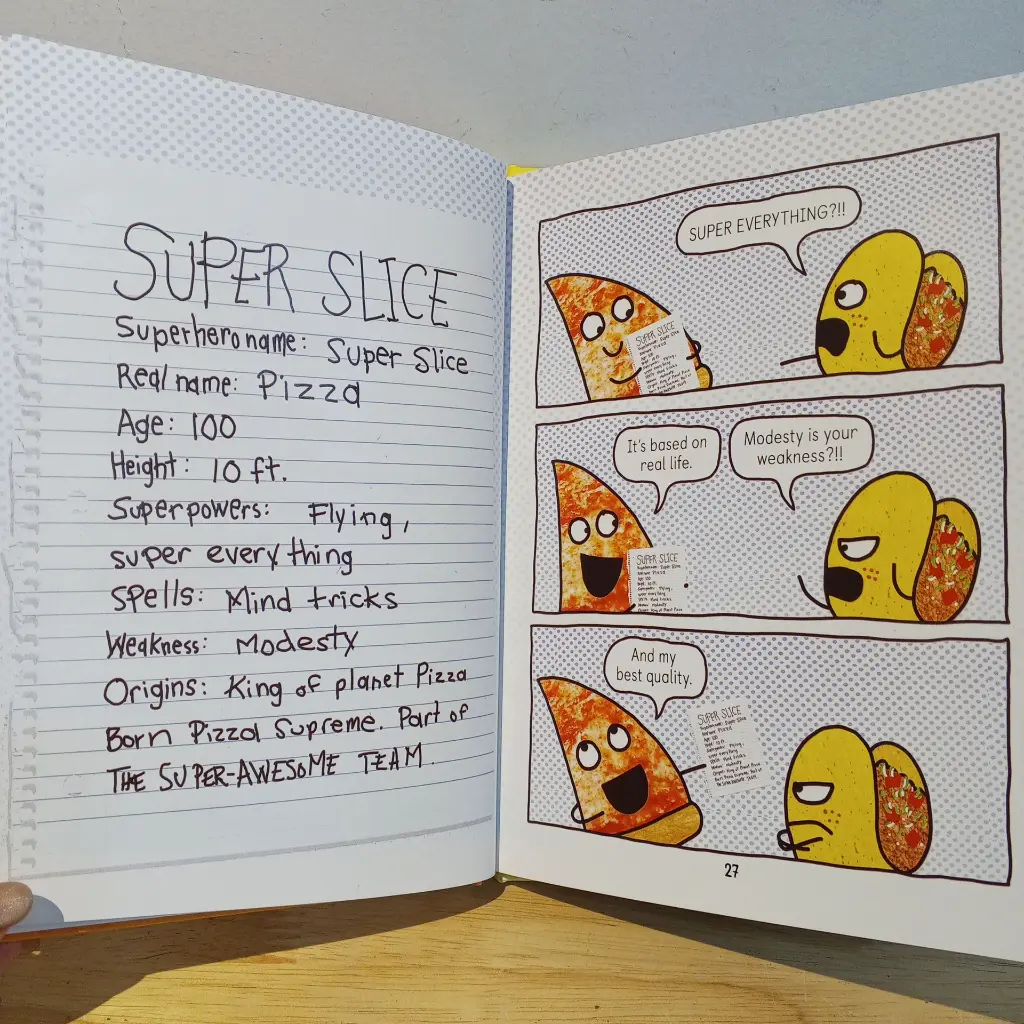 SUPER SLICE
Superhero name: Super Slice
Real name: Pizza
Age: 100
Height: 10 ft.
Superpowers: Flying,
super everything
Spells: Mind tricks
Weakness: Modesty
Origins: King of planet Pizza
Born Pizza Supreme. Part of
THE SUPER-AWESOME TEAM.
SUPER EVERYTHING?!!
SUPER SLICE
It's based on
real life.
Modesty is your
weakness?!!
SUPER SLICE
And my
best quality.
SUPER SLICE
27